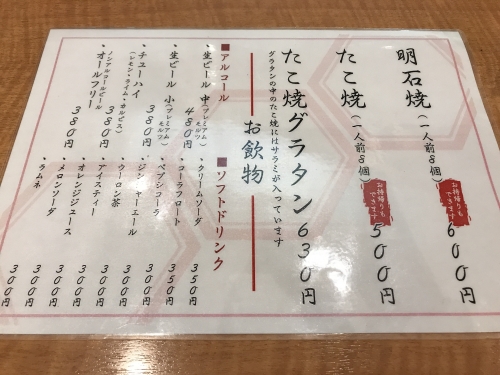 明石焼(一人前8個) お持帰りもできます 600円
たこ焼(一人前8個) お持帰りもできます 500円
たこ焼グラタン 630円
グラタンの中のたこ焼にはサラミが入っています
お飲物
■アルコール
・生ビール 中(プレミアムモルツ) 480円
・生ビール 小(プレミアムモルツ) 380円
・チューハイ(レモン・ライム・カルピス) 380円
・ノンアルコールビール オールフリー 380円
■ソフトドリンク
・クリームソーダ 350円
・コーラフロート 350円
・ペプシコーラ 300円
・ジンジャーエール 300円
・ウーロン茶 300円
・アイスティー 300円
・オレンジジュース 300円
・メロンソーダ 300円
・ラムネ 300円